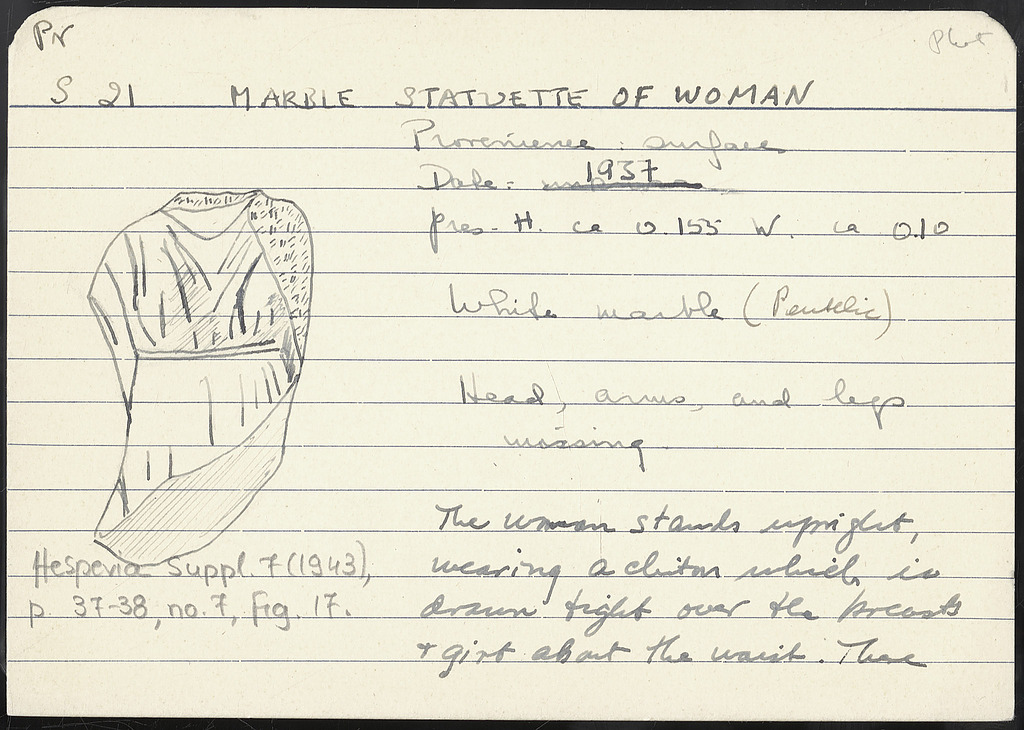 PN
Phot
S 21 MARBLE STATUETTE OF WOMAN
Provenience: surface
Date: 1937
pres. H. ca 0.155 W. ca 0.10
White marble (Pentelic)
Head, arms, and legs
missing.
The woman stands upright,
wearing a chiton which is
drawn tight over the breasts
+ girt about the waist. There
Hesperia Suppl. 7 (1943),
p. 37-38, no. 7, fig. 17.